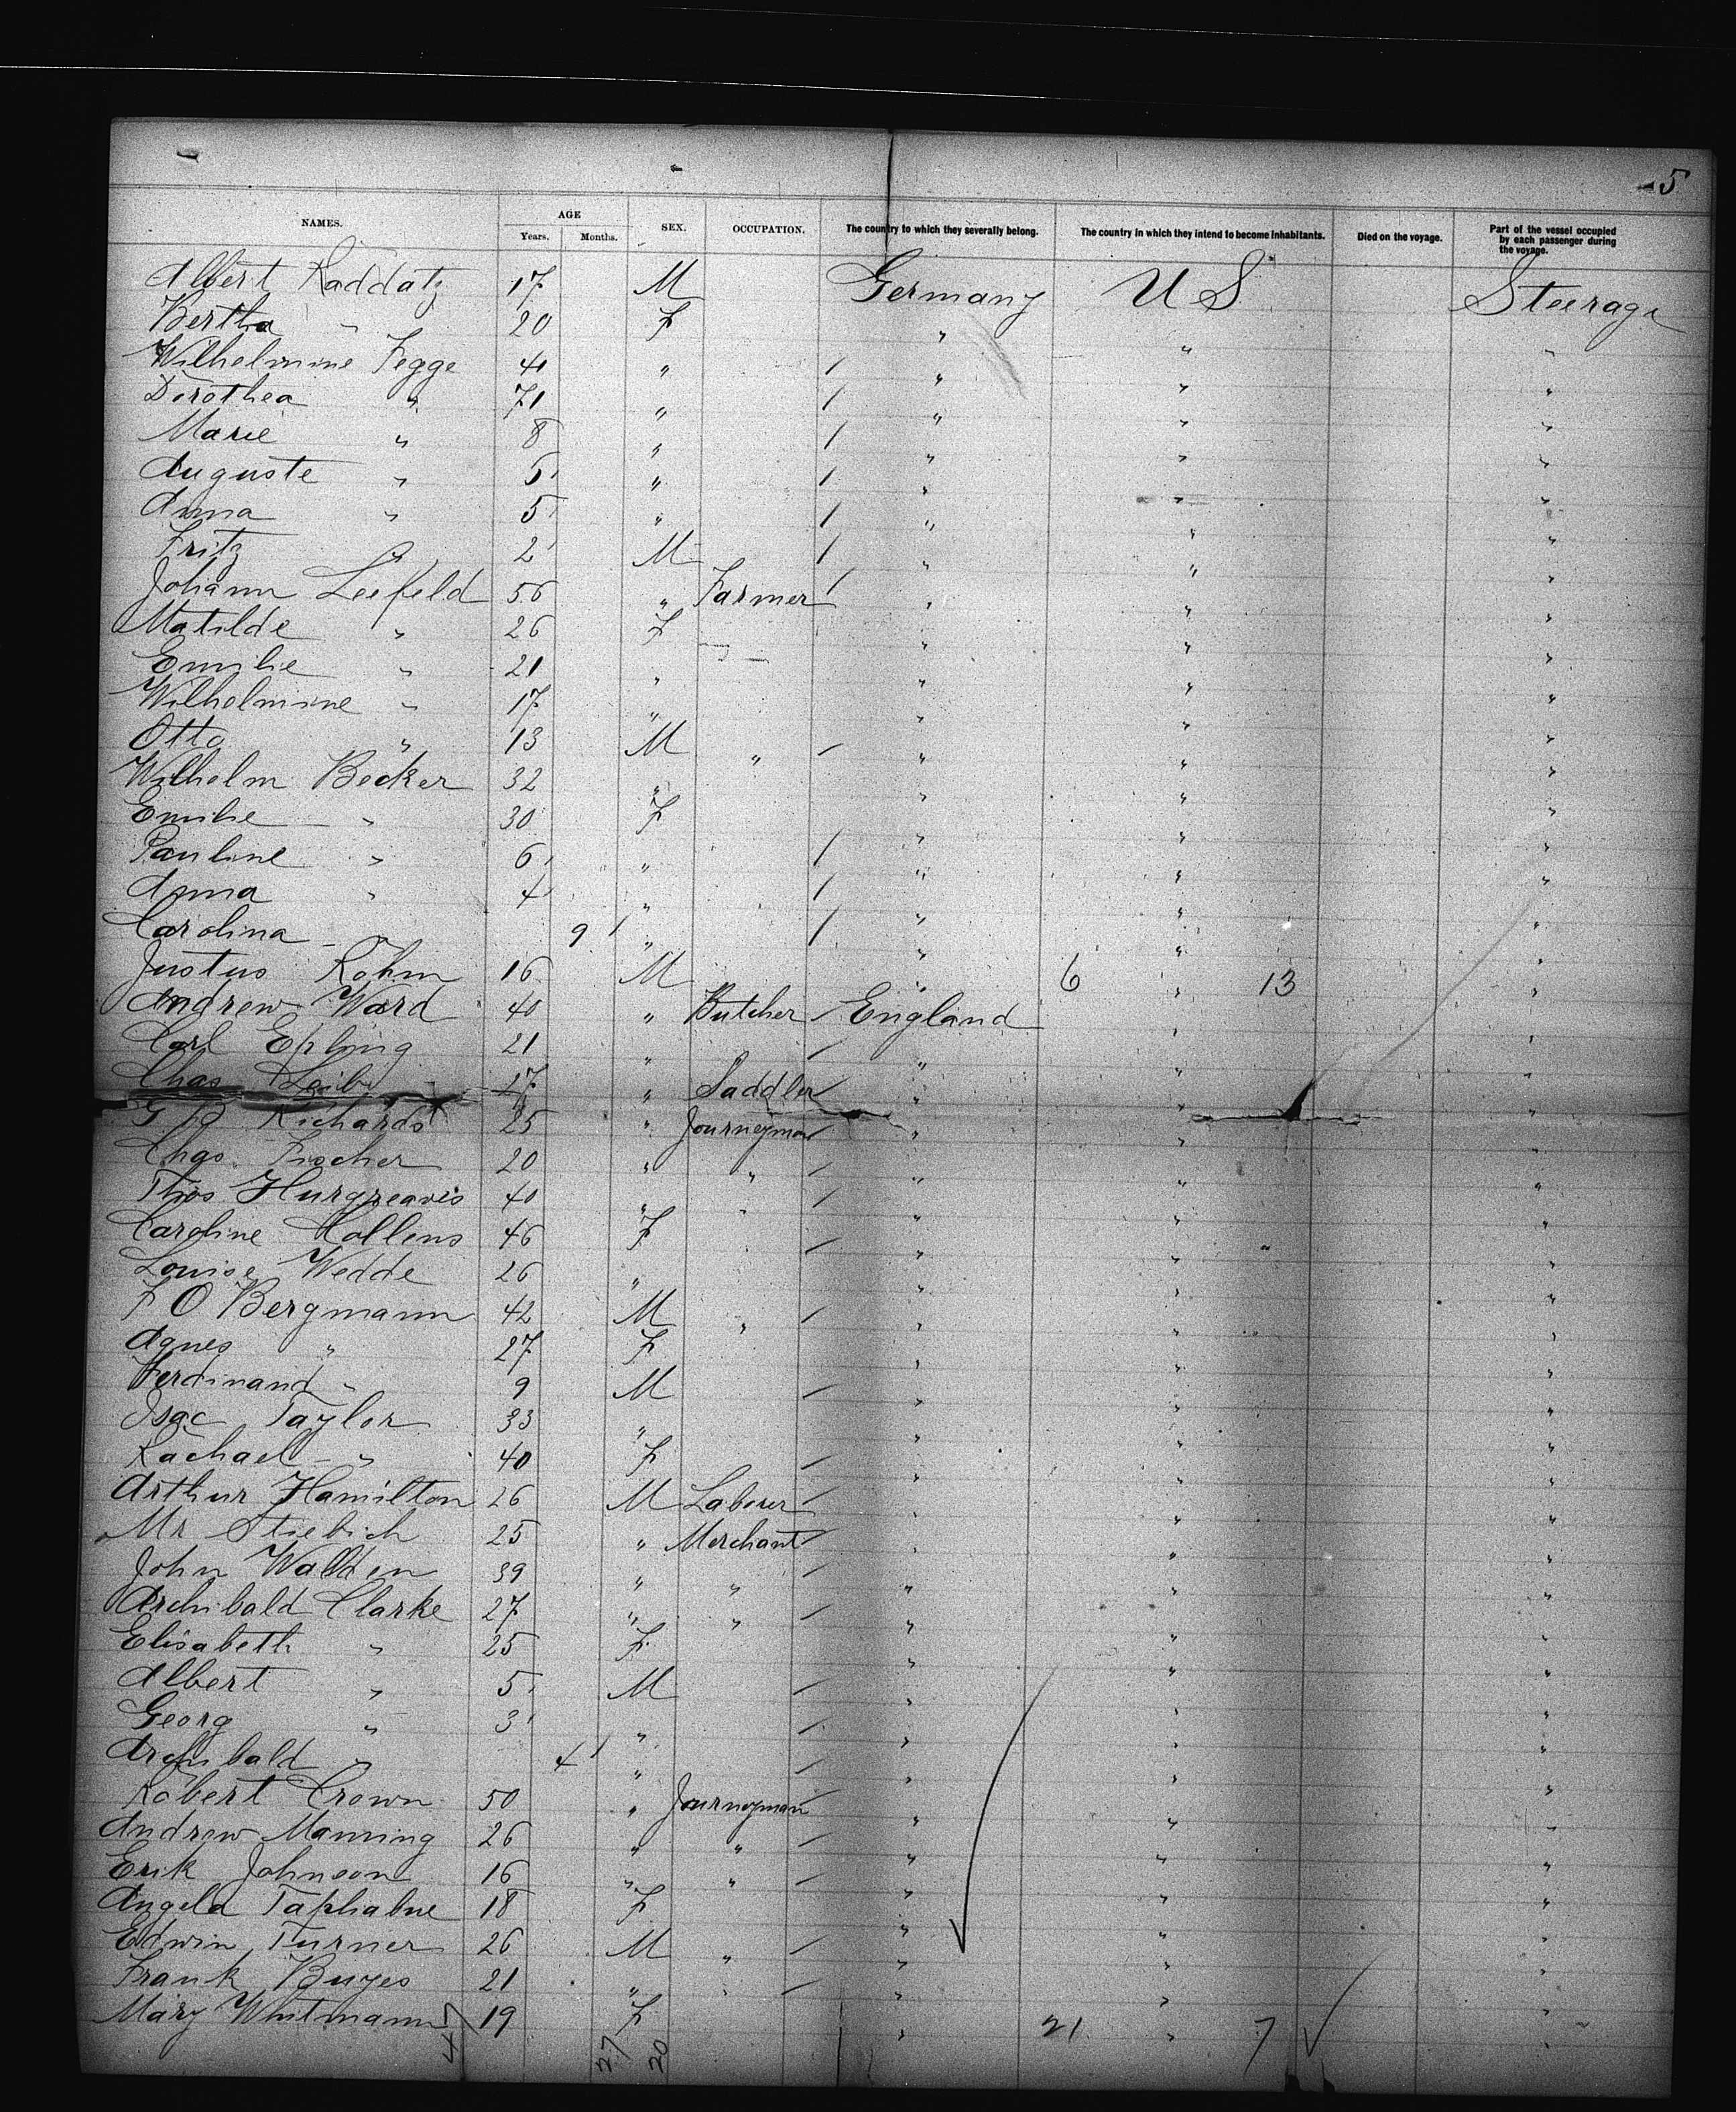 5
NAMES. AGE Years. Months. SEX. OCCUPATION. The country to which they severally belong. The country in which they intend to become inhabitants. Died on the voyage. Part of the vessel occupied by each passenger during the voyage.
Albert Raddatz 17 M Germany U S Steerage
Bertha " 20 F " " "
Wilhelmine Fegge 41 " / " " "
Dorothea " 71 " / " " "
Marie " 8 " / " " "
Auguste " 5 " / " " "
Anna " 5 " / " " "
Fritz " 2 M / " " "
Johann Leefeld 56 " Farmer / " " "
Matilde " 26 F " " "
Emilie " 21 " " " "
Wilhelmine " 17 " " " "
Otto " 13 M " / " " "
Wilhelm Becker 32 " " " "
Emilie " 30 F " " "
Pauline " 6 " / " " "
Anna " 4 " / " " "
Carolina " 9 " / " " "
Justus Rohm 16 M " 6 " 13 "
Andrew Ward 40 " Butcher / England " "
Carl Epling 21 " / " " "
Chas Leib 27 " Saddler / " " "
G Richards 25 " Journeyman / " " "
Chas. Fischer 20 " " / " " "
Thos Hurgreaves 40 " " / " " "
Caroline Collens 46 F / " " "
Louise Wedde 26 " " " "
F O Bergmann 42 M " / " " "
Agnes " 27 F " " "
Ferdinand " 9 M / " " "
Isac Taylor 33 " " " "
Rachael " 40 F / " " "
Arthur Hamilton 26 M Laborer / " " "
Mr Stiebich 25 " Merchant / " " "
John Walden 39 " " / " " "
Archibald Clarke 27 " " / " " "
Elisabeth " 25 F " " "
Albert " 5 M / " " "
Georg " 3 " / " " "
Archibald " 4 " / " " "
Robert Crown 50 " Journeyman / " " "
Andrew Manning 26 " " / " " "
Erik Johnson 16 " " / " " "
Angela Taphabne 18 F " " "
Edwin Turner 26 M " / " " "
Frank Buyes 21 " " / " " "
Mary Whitmann 19 F " 21 " 7 "
47 27 20